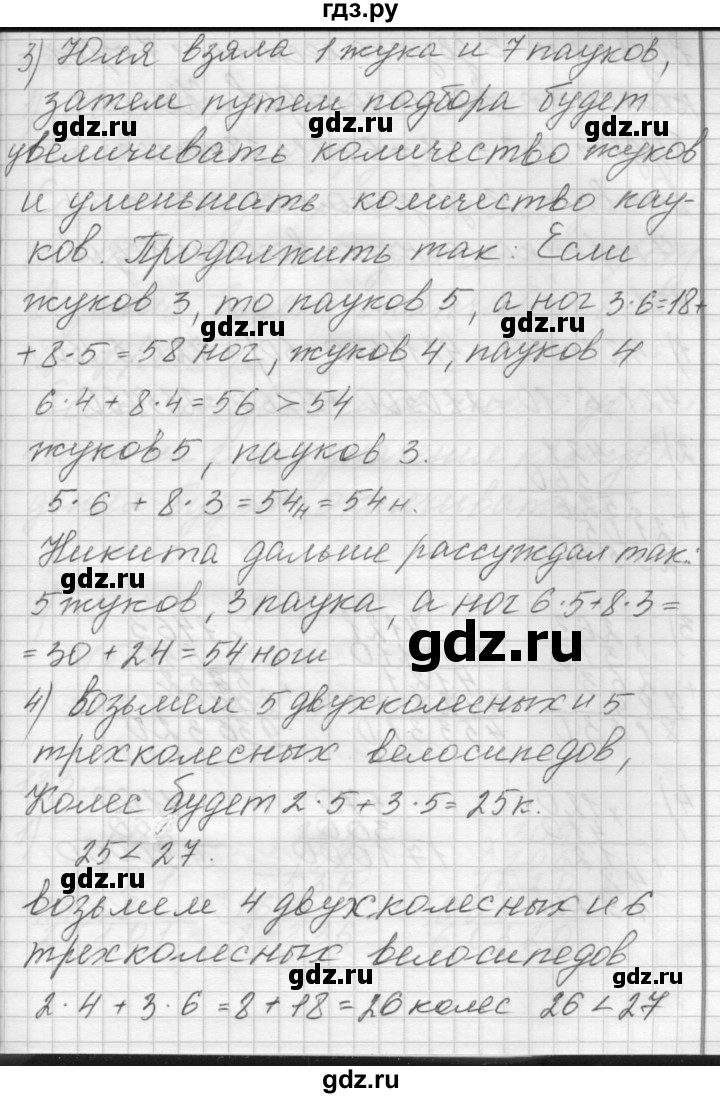 гдз.ру
3) Юля взяла 1 жука и 7 пауков,
затем путем подбора будет
gdz.ru gdz.ru gdz.ru
увеличивать количество жуков
и уменьшать количество пау-
ков. Продолжить так: Если
жуков 3, то пауков 5, а ног 3·6=18+
gdz.ru gdz.ru
+8·5=58 ног, жуков 4, пауков 4
6·4+8·4=56>54
жуков 5, пауков 3.
5·6+8·3=54н=54н.
Никита дальше рассуждал так:
gdz.ru
5 жуков, 3 паука, а ног 6·5+8·3=
gdz.ru
=30+24=54 ноги
4) возьмем 5 двухколесных и 5
трехколесных велосипедов,
Колес будет 2·5+3·5=25к.
25<27.
gdz.ru
возьмем 4 двухколесных и 6
трехколесных велосипедов
gdz.ru gdz.ru
2·4+3·6=8+18=26 колес 26<27
gdz.ru